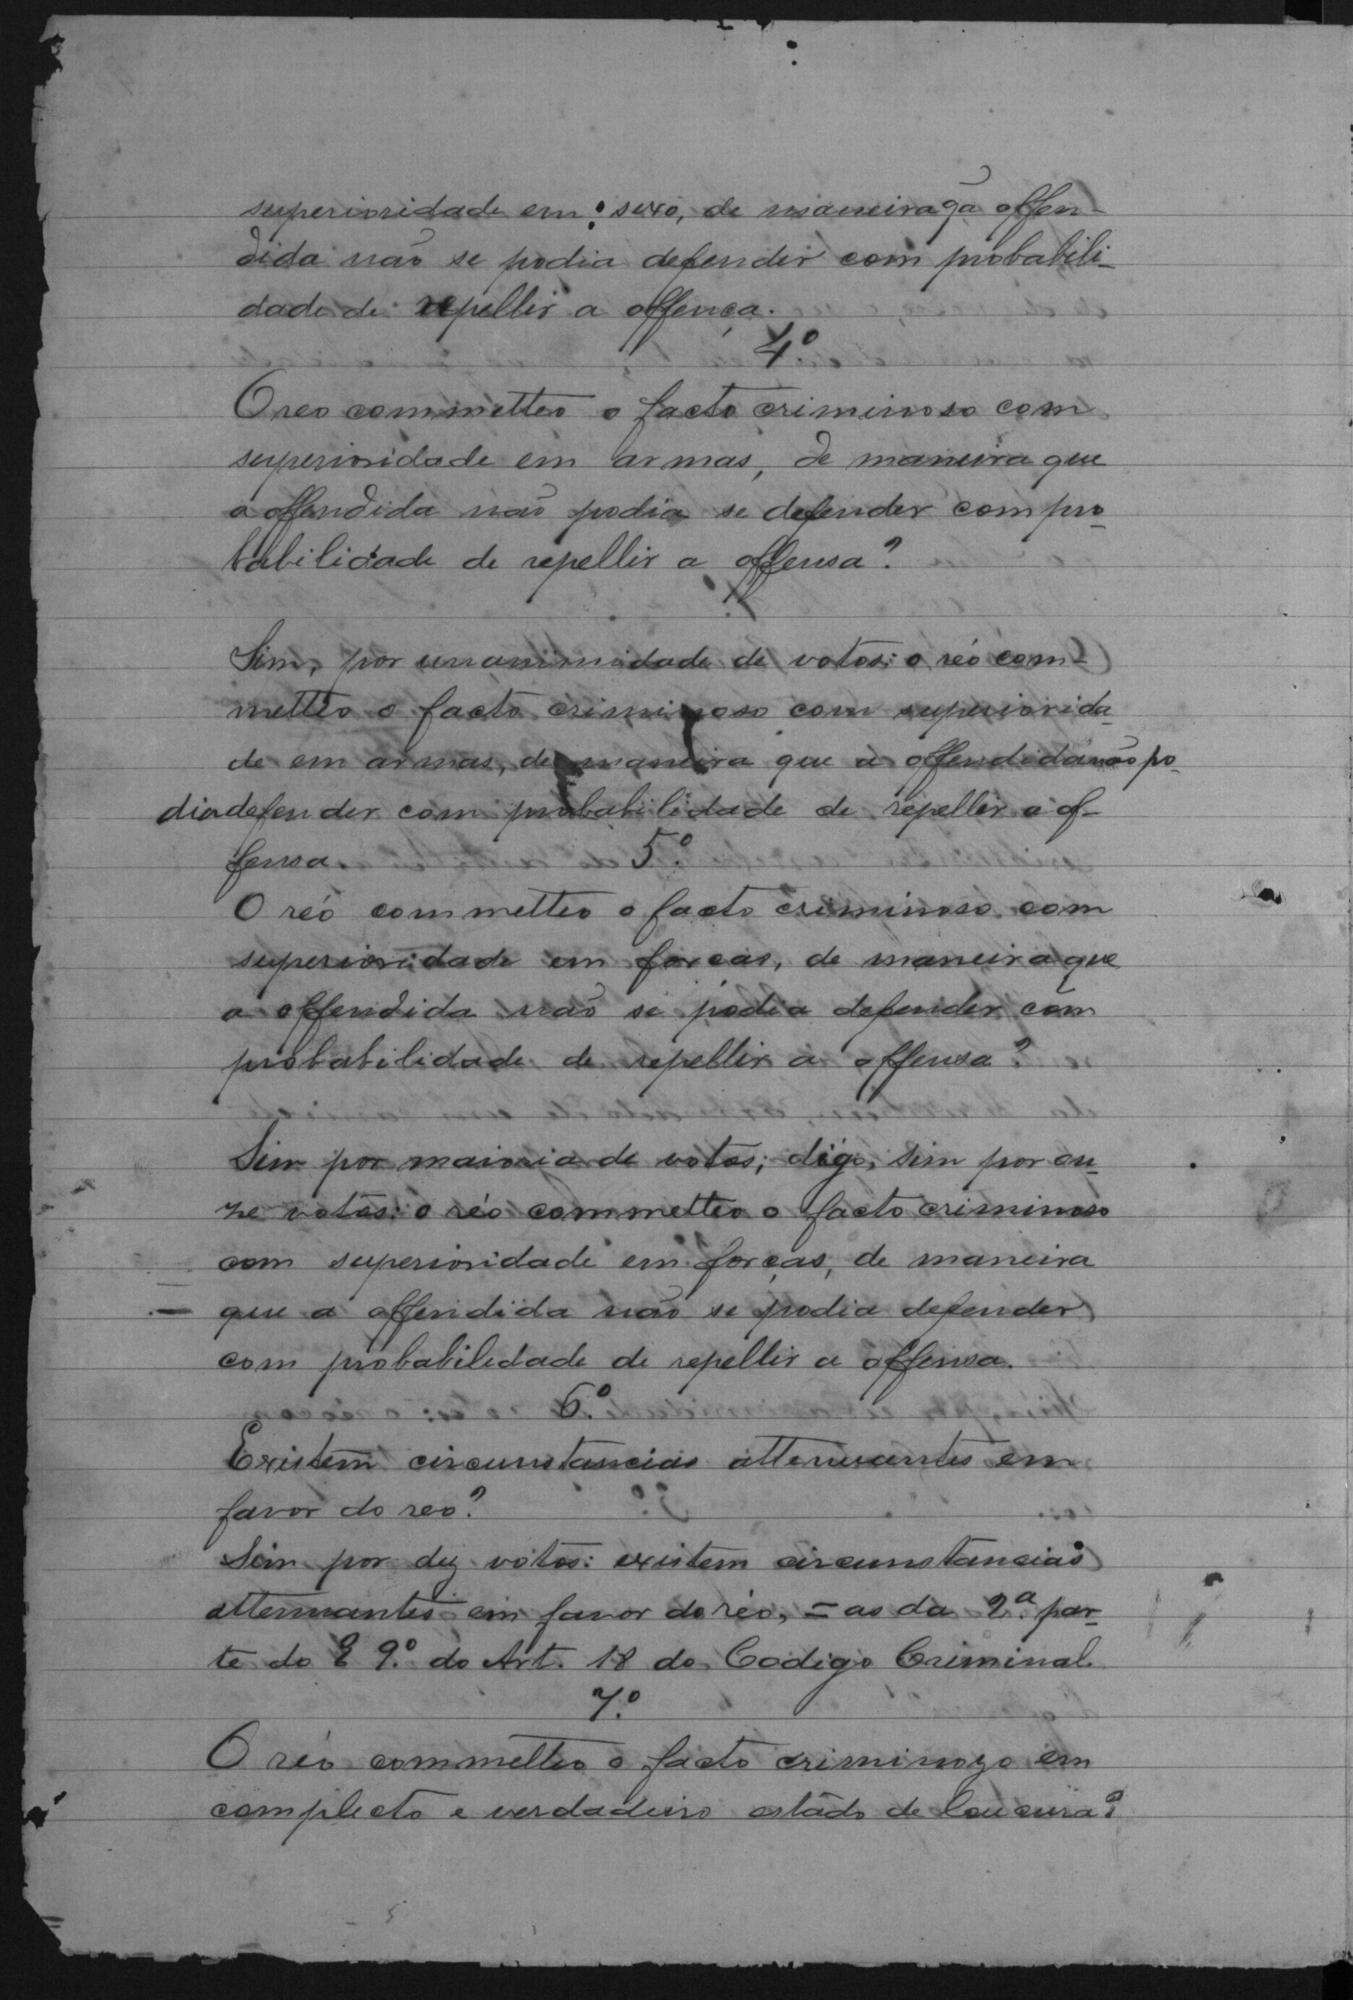 superioridade em sexo, de maneira q̃ a offen-
dida não se podia defender com probabili-
dade de repellir a offença.
4º
O reo commetteo o facto criminoso com
superioridade em armas, de maneira que
a offendida não podia se defender com pro-
babilidade de repellir a offensa?
Sim, por unanimidade de votos: o réo com-
metteo o facto criminoso com superiorida-
de em armas, de maneira que a offendida não po-
dia defender com probabilidade de repellir a of-
fensa.
5º
O réo commetteo o facto criminoso com
superioridade em forças, de maneira que
a offendida não se podia defender com
probabilidade de repellir a offensa?
Sim por maioria de votos; digo, sim por on-
ze votos: o réo commetteo o facto criminoso
com superioridade em forças, de maneira
que a offendida não se podia defender
com probabilidade de repellir a offensa.
6º
Existem circunstancias attenuantes em
favor do reo?
Sim por dez votos: existem circunstancias
attenuantes em favor do réo, = as da 2ª par-
te do § 9º do Art. 18 do Codigo Criminal.
7º
O réo commetteo o facto criminozo em
complecto e verdadeiro estado de loucura?